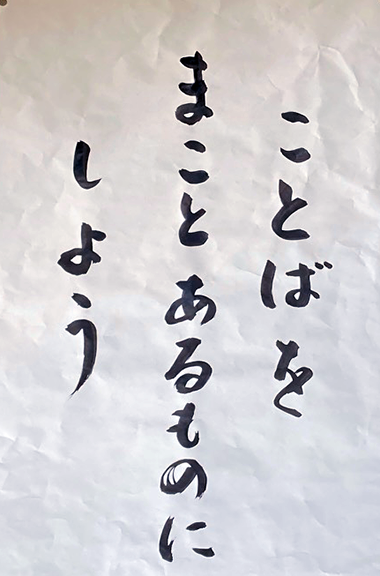 ことばを
まことあるものに
しよう